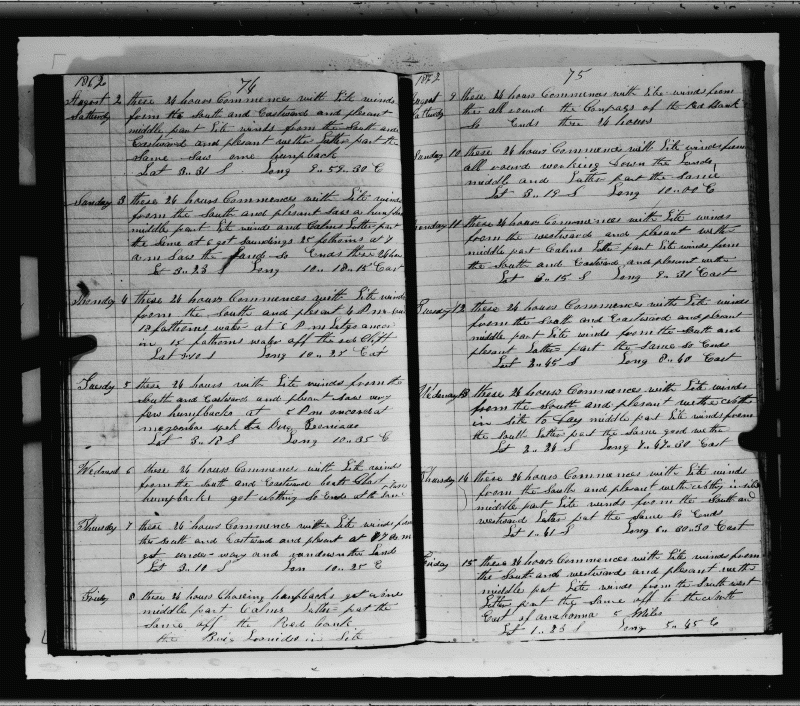 1862
74
August 2 these 24 hours Commences with Lite winds
Saturdy from the South and Eastward and plesant
middle part Lite winds from the South and
Eastward and plesant wethr Latter part the
Same Saw one humpback
Lat 3..31 S Long 8..59..30 E
Sunday 3 these 24 hours Commences with Lite winds
from the South and plesant Saw a humpback
middle part Lite winds and Calms Latter part
the Same at 6 got Soundings 25 fathoms at 7
a.m Saw the Land So Ends these 24 hours
Lat 3..23 S Long 10..18..15 East
Monday 4 these 24 hours Commences with Lite winds
from the South and plesant 4 P.m.
12 fathoms water at 6 P m Letgo ancor
in 15 fathoms water off the red Cliff
Lat Long 10..27 Eat
Tuesday 5 these 24 hours with Lite winds from the
South and Eastward and plesant Saw very
few humpbacks at 5 P.m ancored at
with the Brig Leonidas
Lat 3..18 S Long 10..35 E
Wednesd 6 these 24 hours Commences with Lite winds
from the South and Eastward boats Chast
humpbacks got nothing So Ends
Thursday 7 these 24 hours Commences with Lite winds from
the South and Eastward and plesant at 7 a m
got under way and randown the Land
Lat 3..10 S Lon 10..25 E
Friday 8 these 24 hours Chasing humpbacks got none
middle part Calms Latter part the
Same off the Red bank
the Brig Leonidas in Site
1862
75
August 9 these 24 hours Commences with Lite winds from
Saturdy this all round the Compass of the Red blank
So Ends these 24 hours
Sunday 10 these 24 hours Commences with Lite winds from
all round working Down the Land
middle and Latter part the Same
Lat 3..19 S Long 10..00 E
Monday 11 these 24 hours Commences with Lite winds
from the westward and plesant wethr
middle part Calms Latter part Lite winds from
the South and Eastward and plesant wethr
Lat 3..15 S Long 9..31 East
Tuesday 12 these 24 hours Commences with Lite winds
from the South and Eastward and plesant
middle part Lite winds from the South and
plesant Latter part the Same So Ends
Lat 2..45 S Long 8..40 East
Wednesday 13 these 24 hours Commences with Lite winds
from the South and plesant wethr nothing
in Site to Day middle part Lite winds from
the South Latter part the Same good wethr
Lat 2..24 S Long 7..47..30 East
Thursday 14 these 24 hours Commences with Lite winds
from the South and plesant wethr nothing in Site
middle part Lite winds from the South and
westward Latter part the Same So Ends
Lat 1..51 S Long 6..30..30 East
Friday 15 these 24 hours Commences with Lite winds from
the South and westward and plesant wethr
middle part Lite winds from the South west
Latter part the Same off to the North
East of anabonna 5 Miles
Lat 1..23 S Long 5..45 E